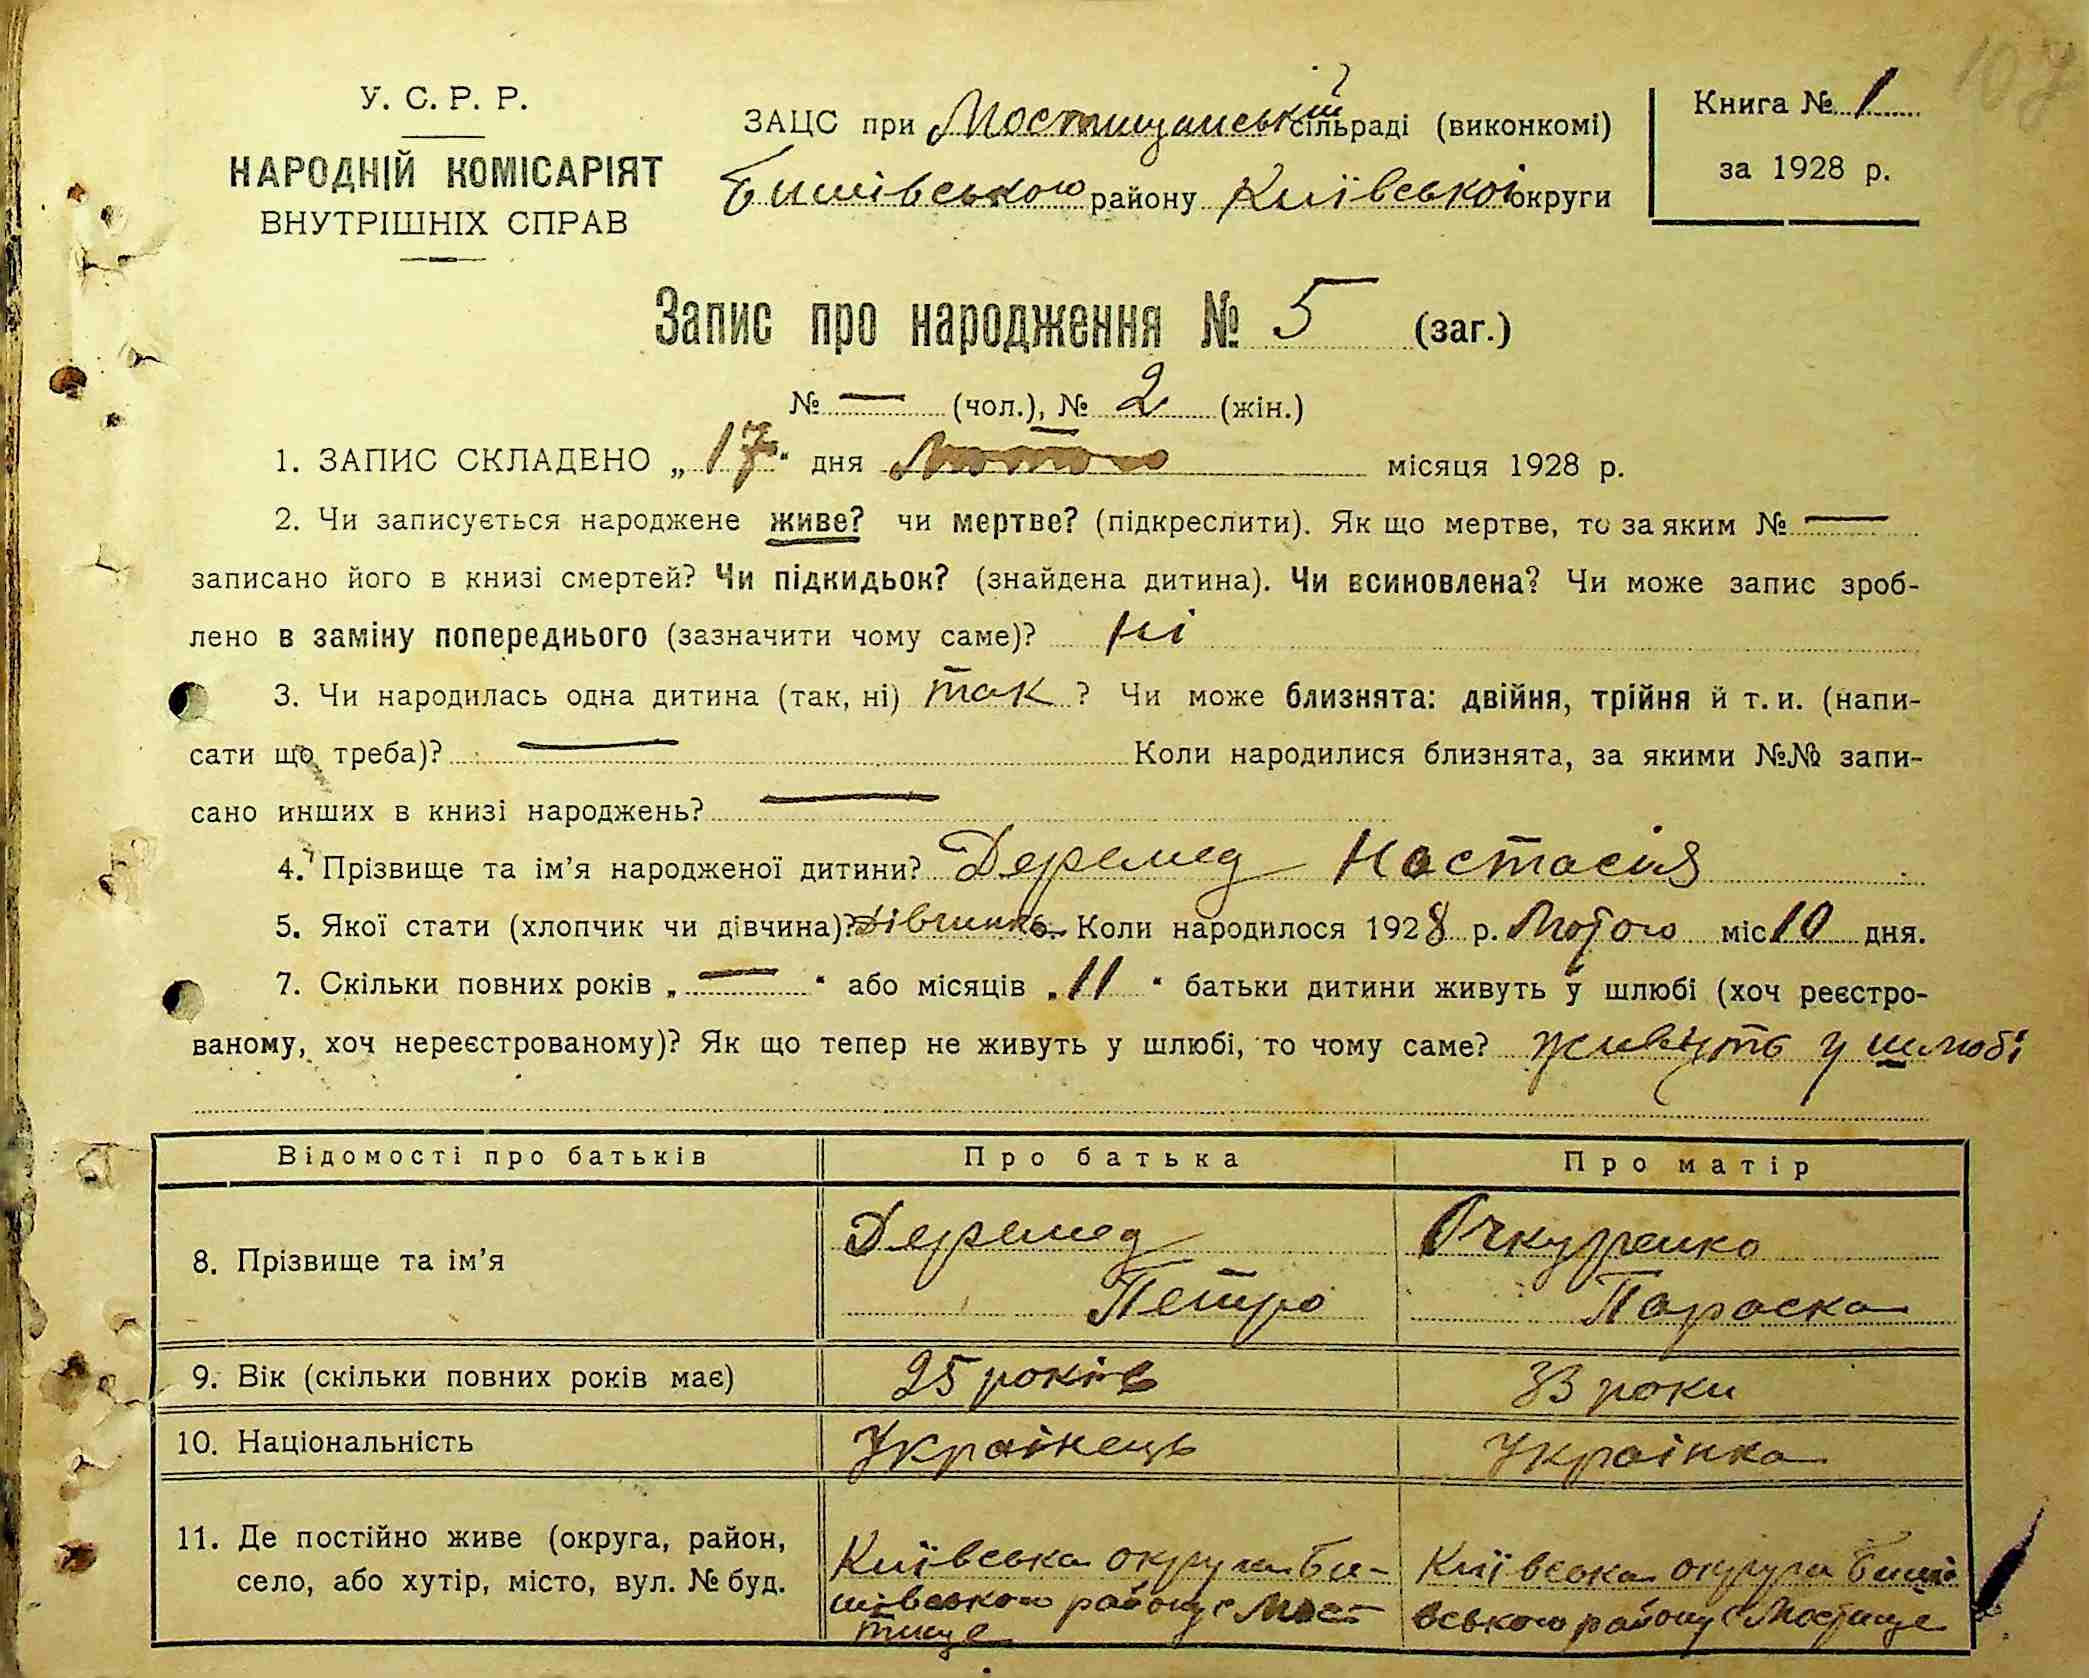 107
У. С. Р. Р.
НАРОДНІЙ КОМІСАРІЯТ
ВНУТРІШНІХ СПРАВ
ЗАЦС при Мостищанській сільраді (виконкомі)
Бишівського району Київської округи
Книга № 1
за 1928 р.
Запис про народження № 5 (заг.)
№ — (чол.), № 2 (жін.)
1. ЗАПИС СКЛАДЕНО „17“ дня Лютого місяця 1928 р.
2. Чи записується народжене живе? чи мертве? (підкреслити). Як що мертве, то за яким № —
записано його в книзі смертей? Чи підкидьок? (знайдена дитина). Чи всиновлена? Чи може запис зроб-
лено в заміну попереднього (зазначити чому саме)? Ні
3. Чи народилась одна дитина (так, ні) так ? Чи може близнята: двійня, трійня й т. и. (напи-
сати що треба)? — Коли народилися близнята, за якими №№ запи-
сано инших в книзі народжень? —
4. Прізвище та ім’я народженої дитини? Деремед Настасія
5. Якої стати (хлопчик чи дівчина)? Дівчина Коли народилося 1928 р. Лютого міс 10 дня.
7. Скільки повних років „—“ або місяців „11“ батьки дитини живуть у шлюбі (хоч реєстро-
ваному, хоч нереєстрованому)? Як що тепер не живуть у шлюбі, то чому саме? живуть у шлюбі
Відомості про батьків Про батька Про матір
8. Прізвище та ім’я Деремед Петро Очкуренко Параска
9. Вік (скільки повних років має) 25 років 33 роки
10. Національність Українець Українка
11. Де постійно живе (округа, район,
село, або хутір, місто, вул. № буд.
Київська округа Би-
шівського району с Мос
тище
Київська округа Биші
вського району с Мостище